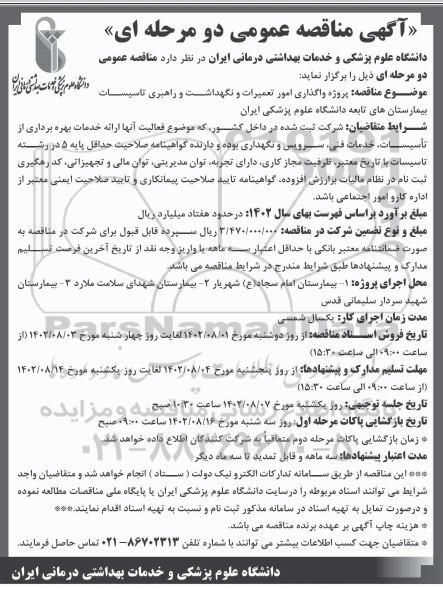 «آگهی مناقصه عمومی دو مرحله ای»
دانشگاه علوم پزشکی و خدمات بهداشتی درمانی ایران
دانشگاه علوم پزشکی و خدمات بهداشتی درمانی ایران در نظر دارد مناقصه عمومی
دو مرحله ای ذیل را برگزار نماید:
موضوع مناقصه: پروژه واگذاری امور تعمیرات و نگهداشت و راهبری تاسیسات
بیمارستان های تابعه دانشگاه علوم پزشکی ایران
شرایط متقاضیان: شرکت ثبت شده در داخل کشور، که موضوع فعالیت آنها ارائه خدمات بهره برداری از
تأسیسات، خدمات فنی، سرویس و نگهداری بوده و دارنده گواهینامه صلاحیت حداقل پایه ۵ در رشته
تاسیسات با تاریخ معتبر، ظرفیت مجاز کاری، دارای تجربه، توان مدیریتی، توان مالی و تجهیزاتی، کد رهگیری
ثبت نام در نظام مالیات برارزش افزوده، گواهینامه تایید صلاحیت پیمانکاری و تایید صلاحیت ایمنی معتبر از
اداره کار و امور اجتماعی باشد.
مبلغ برآورد براساس فهرست بهای سال ۱۴۰۲: درحدود هفتاد میلیارد ریال
مبلغ و نوع تضمین شرکت در مناقصه: ۳/۴۷۰/۰۰۰/۰۰۰ ریال سپرده قابل قبول برای شرکت در مناقصه به
صورت ضمانتنامه معتبر بانکی با حداقل اعتبار سه ماهه یا واریز وجه نقد از تاریخ آخرین فرصت تسلیم
مدارک و پیشنهادها طبق شرایط مندرج در شرایط مناقصه می باشد.
محل اجرای پروژه: ۱- بیمارستان امام سجاد(ع) شهریار ۲- بیمارستان شهدای سلامت ملارد ۳- بیمارستان
شهید سردار سلیمانی قدس
مدت زمان اجرای کار: یکسال شمسی
تاریخ فروش اسناد مناقصه: از روز دوشنبه مورخ ۱۴۰۲/۰۸/۰۱ لغایت روز چهار شنبه مورخ ۱۴۰۲/۰۸/۰۳ (از
ساعت ۰۹:۰۰ الی ساعت ۱۵:۳۰)
مهلت تسلیم مدارک و پیشنهادها: از روز پنجشنبه مورخ ۱۴۰۲/۰۸/۰۴ لغایت روز یکشنبه مورخ ۱۴۰۲/۰۸/۱۴
(از ساعت ۰۹:۰۰ الی ساعت ۱۵:۳۰)
تاریخ جلسه توجیهی: روز یکشنبه مورخ ۱۴۰۲/۰۸/۰۷ ساعت ۱۰:۳۰ صبح
تاریخ بازگشایی پاکات مرحله اول: روز سه شنبه مورخ ۱۴۰۲/۰۸/۱۶ ساعت ۰۹:۰۰ صبح
* زمان بازگشایی پاکات مرحله دوم متعاقباً به شرکت کنندگان اطلاع داده خواهد شد.
مدت اعتبار پیشنهادها: سه ماهه و قابل تمدید تا سه ماه دیگر
*** این مناقصه از طریق سامانه تدارکات الکترونیک دولت (ستاد) انجام خواهد شد و متقاضیان واجد
شرایط می توانند اسناد مربوطه را درسایت دانشگاه علوم پزشکی ایران یا پایگاه ملی مناقصات مطالعه نموده
و درصورت تمایل به تهیه اسناد در سامانه مذکور ثبت نام و نسبت به تهیه اسناد اقدام نمایند.***
* هزینه چاپ آگهی بر عهده برنده مناقصه می باشد.
* متقاضیان جهت کسب اطلاعات بیشتر می توانند با شماره تلفن ۸۶۷۰۲۳۱۳-۰۲۱ تماس حاصل فرمایند.
دانشگاه علوم پزشکی و خدمات بهداشتی درمانی ایران